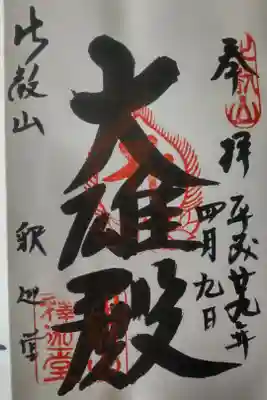 奉拝
平成廿九年
四月九日
大雄殿
比叡山 釈迦堂
比叡山
釋迦堂